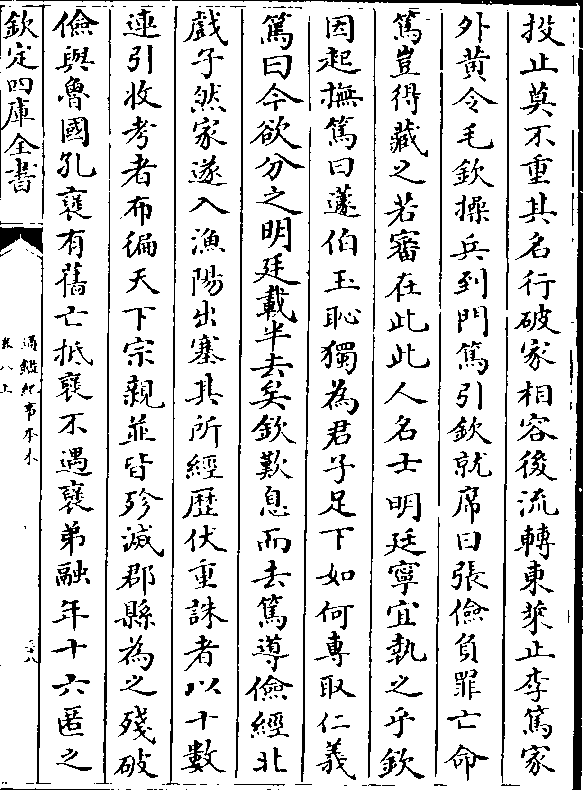 投止莫不重其名行破家相容後流轉東萊止李篤家
外黄令毛欽操兵到門篤引欽就席曰張儉負罪亡命
篤豈得藏之若審在此此人名士明廷寧宜執之乎欽
因起撫篤曰蘧伯玉恥獨為君子足下如何專取仁義
篤曰今欲分之明廷載半去矣欽歎息而去篤導儉經北
戲子然家遂入漁陽出塞其所經歴伏重誅者以十數
連引收考者布徧天下宗親並皆殄滅郡縣為之殘破
儉與魯國孔襃有舊亡抵襃不遇襃弟融年十六匿之
欽定四庫全書
通鑑紀事本末
卷八上